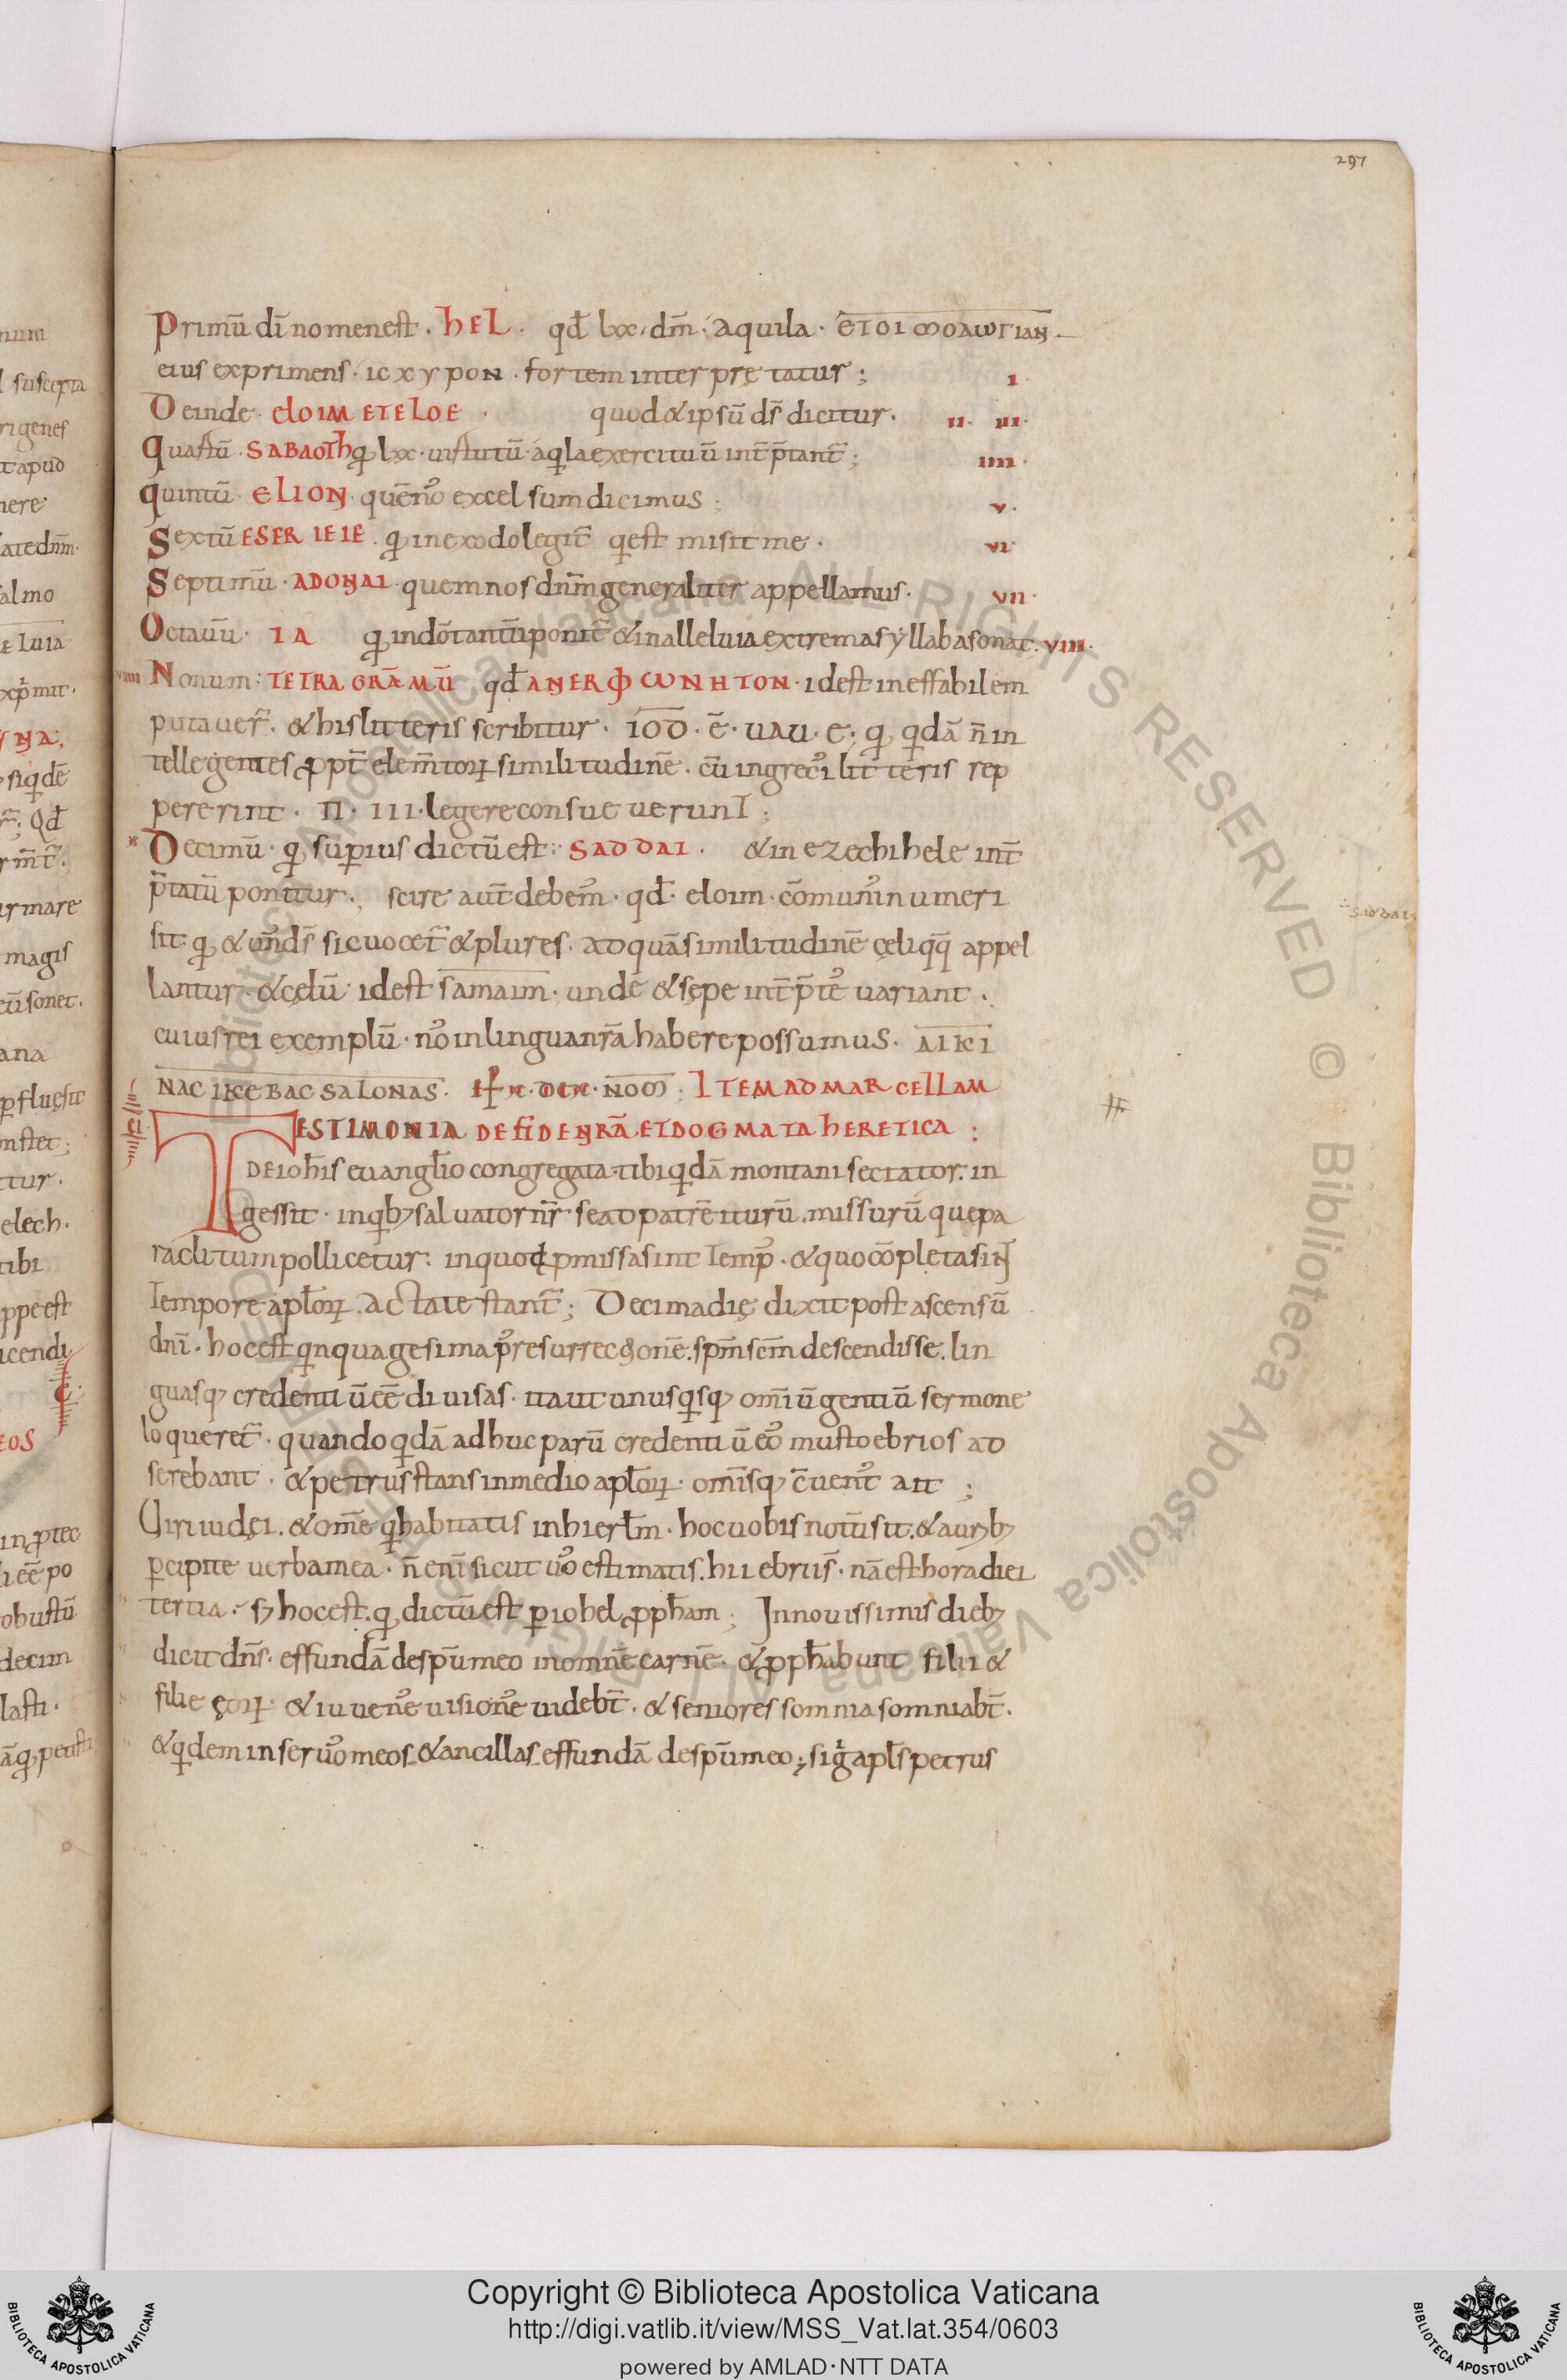 297
Primū dī nomen est . hEL . qđ lxx, dm̄ . aquila . ETOI MOΛωΓIAN
eius exprimens . ICXYPON . fortem interprętatur ; I.
Deinde . eloim ETELOE . quod & ipsū ds̄ dicitur . II. III.
Quartū . SABAOTh q̨ lxx . uirtutū . aq̨la exercituū int̄p̄tant̄ ; IIII.
Quintū . ELION . quē nō excelsum dicimus ; V.
Sextū ESER IEIE . q̨ in exodo legit̄ q̨ est misit me . VI.
Septimū . ADONAI . quem nos dnm̄ generaliter appellamus . VII.
Octauū . IA q̨ in dō tantū ponit̄ & in alleluia extrema syllaba sonat . VIII.
VIIII Nonum : TETRAGRĀMŪ qđ ANERΦωNHTON . id est ineffabilem
putauer̄ . & his litteris scribitur . IOD . ē . UAU . E . q̨ q̨dā n̄ in
tellegentes ppt̄ elem̄torꝝ similitudinē . cū in grecꝰ litteris rep
pererint . Π . ΙΙΙ . legere consueuerunt ;
X Decimū . q̨ superius dictū est : SADDAI . & in ezechihele int̄
p̄tatū ponitur . scire aūt debemꝰ . qđ . eloim . cōmunꝰ numeri
sit q̨ & unꝰ ds̄ sic uocet̄ & plures . ad quā similitudinē cęli qq̄ appel
lantur . & cęlū . id est samaim . unde & sępe int̄p̄tꝰ uariant .
cuius rei exemplū . nō in lingua nr̄a habere possumus . AIKI
NAC IKEBAC SALONAS . ITEM AD MARCELLAM
TESTIMONIA DE FIDE NRĀ . ET DOGMATA HERETICA :
DE ioh̄is euangl̄io congregata . tibi q̨dā montani sectator . in
gessit . in q̨bꝫ saluator nr̄ se ad patrē iturū . missurū quę pa
raclitum pollicetur : in quod pmissa sint tempꝰ . & quo cōpleta sint
tempore apl̄orꝝ . acta testant̄ ; Decima dię dixit post ascensū
dnī . hoc est q̨nquagesima pꝰ resurrectionē . spm̄ scm̄ descendisse . lin
guasqꝫ credentiū ēē diuisas . ita ut unusq̨sqꝫ om̄iū gentiū sermone
loqueret̄ . quando q̨dā adhuc parū credentiū eoꝰ musto ebrios ad
serebant . & petrus stans in medio apl̄orꝝ . om̄isqꝫ c̄uentꝰ ait ;
Uiri iudęi . & om̄e q̨ habitatis in hierl̄m . hoc uobis notū sit . & auribꝫ
percipite uerba mea . n̄ eni sicut uꝰ estimatis . hii ebrii s̄ . nā est hora diei
tertia . sꝫ hoc est . q̨ dictū est per iohel pph̄am ; In nouissimis diebꝫ
dicit dns̄ . effundā de spū meo in omnē carnē . & pph̄abunt filii &
filie eorꝝ . & iuuenꝰ uisionꝰ uidebt̄ . & seniores somnia somniabt̄ .
& q̨dem in seruꝰ meos . & ancillas effundā de spū meo ; sig̊ apl̄s petrus
SADDAI
Copyright © Biblioteca Apostolica Vaticana
http://digi.vatlib.it/view/MSS_Vat.lat.354/0603
powered by AMLAD·NTT DATA